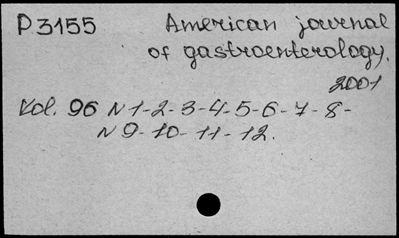 P3155 American journal
of gastroenterology.
2001
Vol. 96 N 1-2-3-4-5-6-7-8-
N 9-10-11-12.